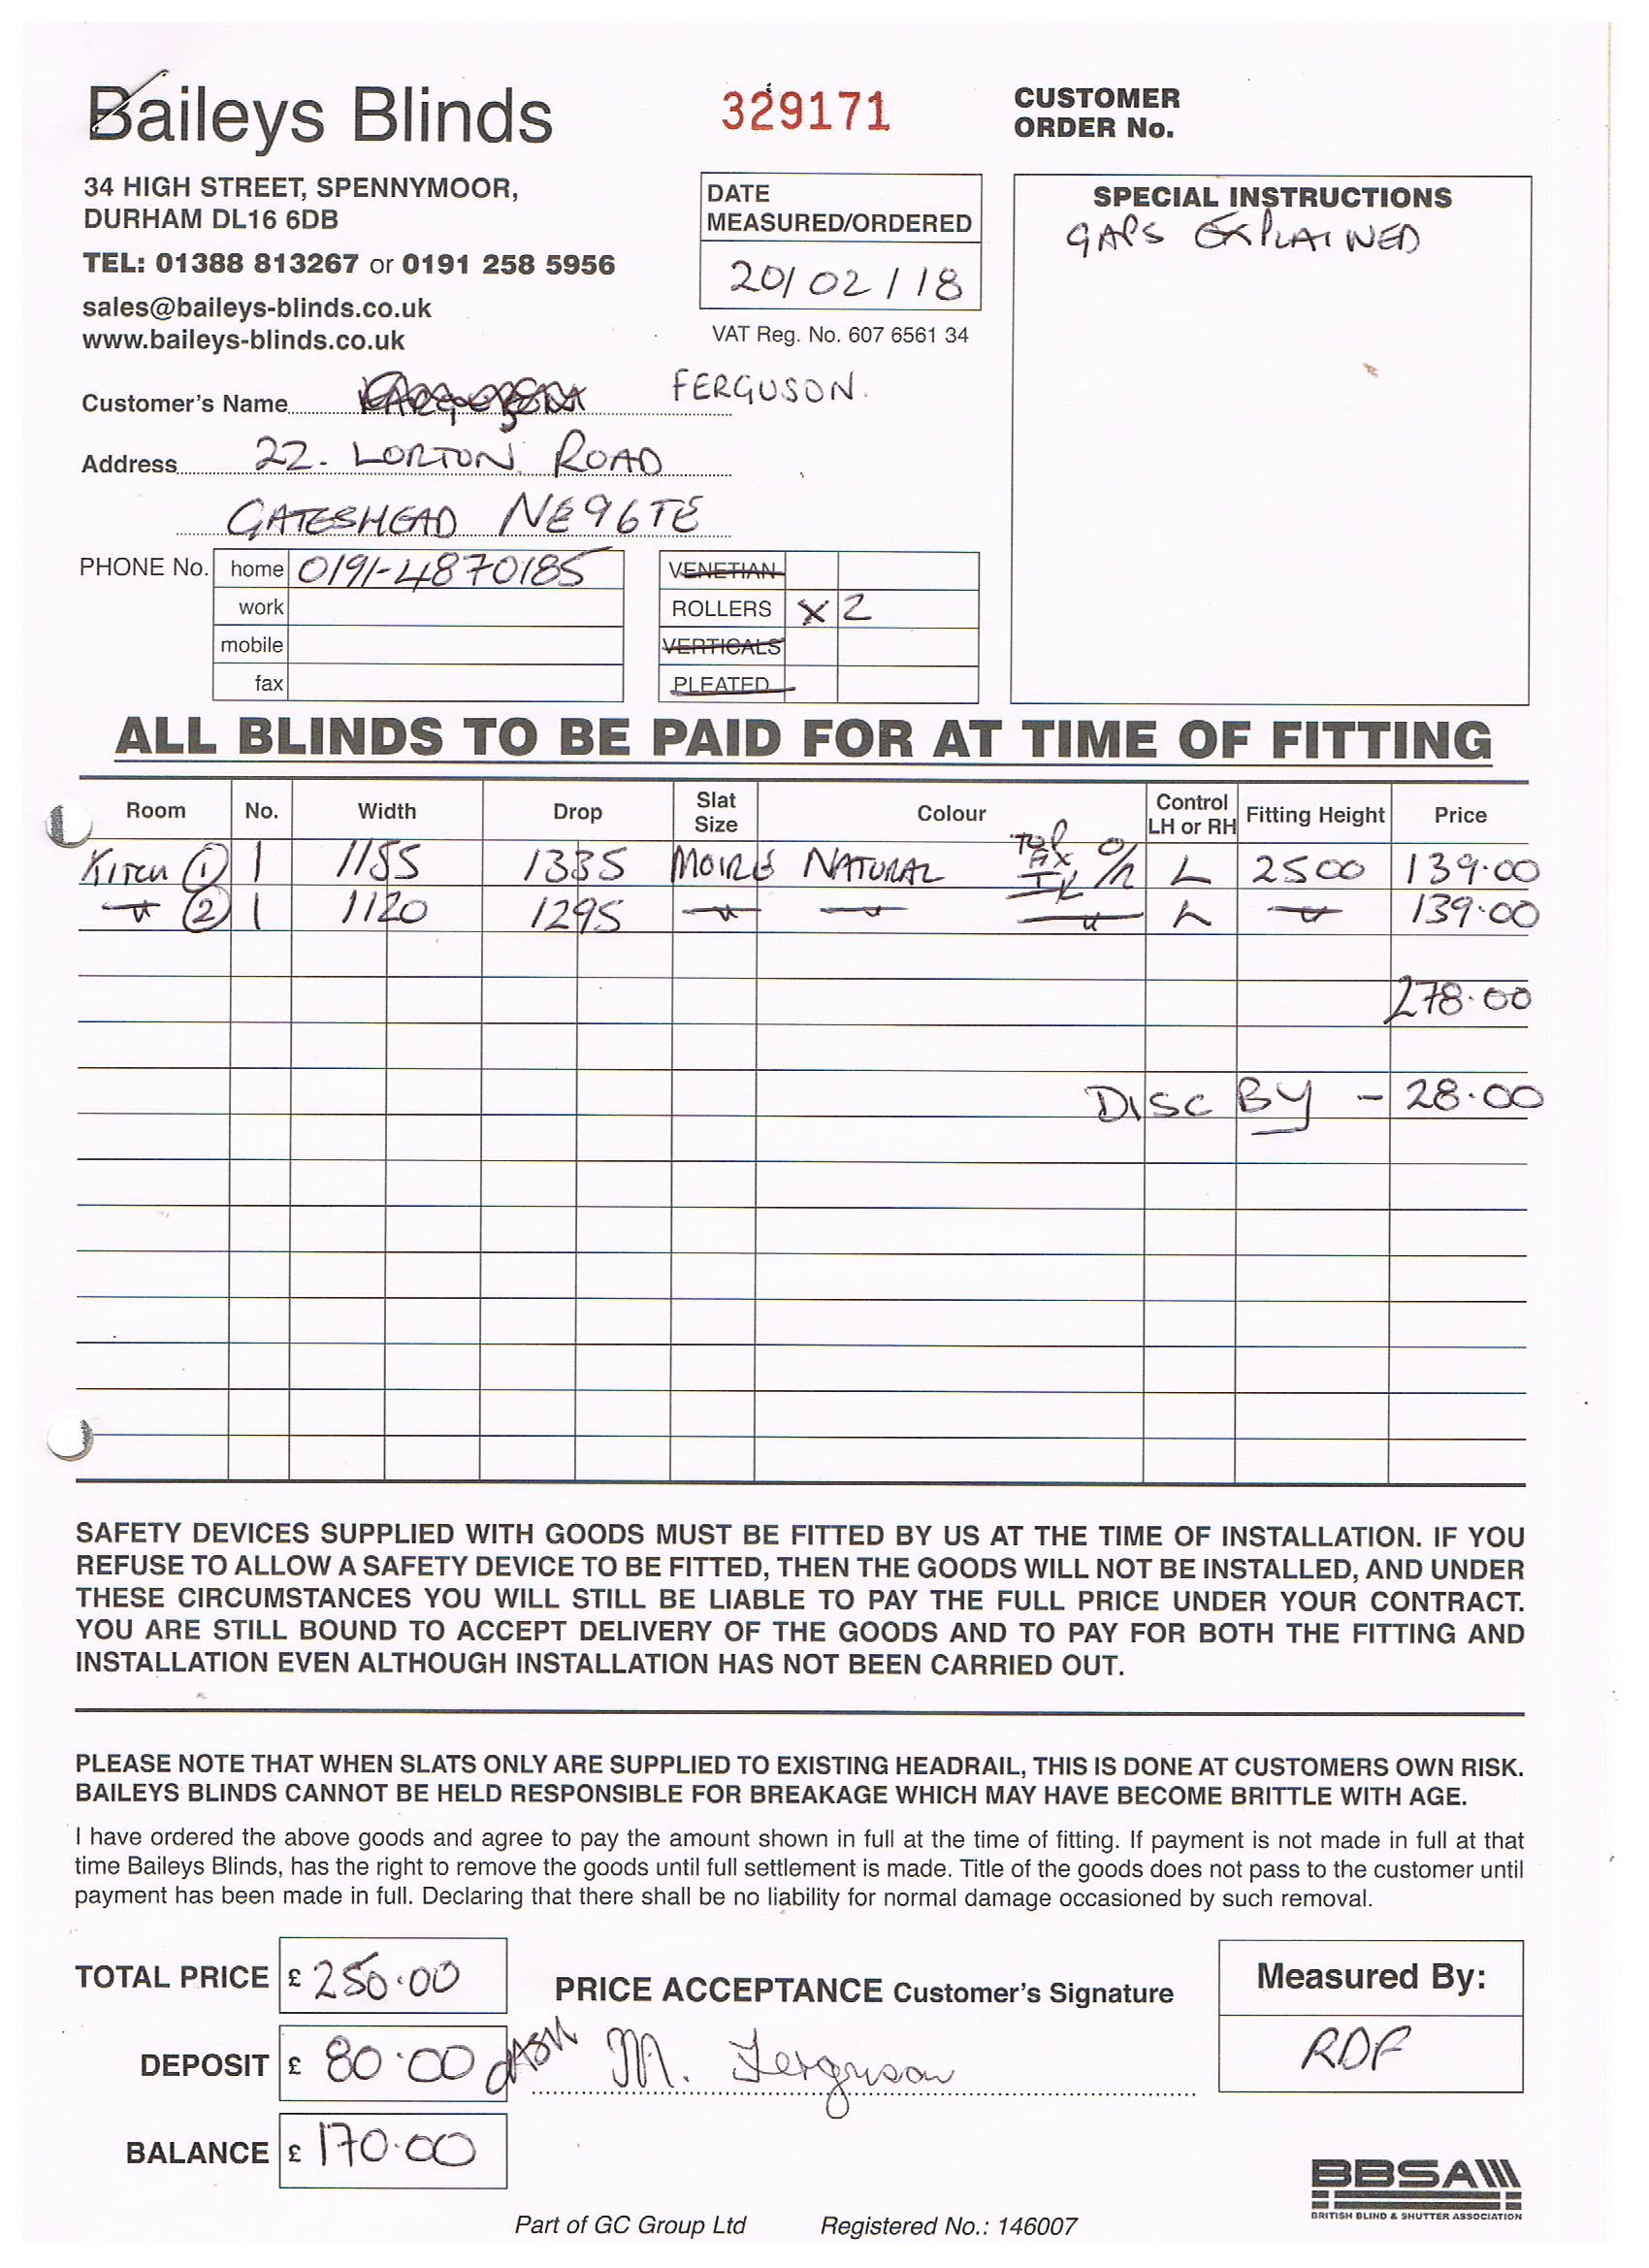 Baileys Blinds
34 HIGH STREET, SPENNYMOOR,
DURHAM DL16 6DB
TEL: 01388 813267 or 0191 258 5956
sales@baileys-blinds.co.uk
www.baileys-blinds.co.uk
329171
DATE
MEASURED/ORDERED
20/02/18
VAT Reg. No. 607 6561 34
CUSTOMER
ORDER No.
SPECIAL INSTRUCTIONS
GAPS EXPLAINED
Customer's Name FERGUSON.
Address 22. LORTON ROAD
GATESHEAD NE96TE
PHONE No. home 0191-4870185
work
mobile
fax
VENETIAN
ROLLERS X 2
VERTICALS
PLEATED
ALL BLINDS TO BE PAID FOR AT TIME OF FITTING
Room No. Width Drop Slat Size Colour Control LH or RH Fitting Height Price
KITCH 1 1 1155 1335 MOIRE NATURAL TOP FIX O/R L 2500 139.00
" 2 1 1120 1295 " " " L " 139.00
278.00
DISC BY - 28.00
SAFETY DEVICES SUPPLIED WITH GOODS MUST BE FITTED BY US AT THE TIME OF INSTALLATION. IF YOU
REFUSE TO ALLOW A SAFETY DEVICE TO BE FITTED, THEN THE GOODS WILL NOT BE INSTALLED, AND UNDER
THESE CIRCUMSTANCES YOU WILL STILL BE LIABLE TO PAY THE FULL PRICE UNDER YOUR CONTRACT.
YOU ARE STILL BOUND TO ACCEPT DELIVERY OF THE GOODS AND TO PAY FOR BOTH THE FITTING AND
INSTALLATION EVEN ALTHOUGH INSTALLATION HAS NOT BEEN CARRIED OUT.
PLEASE NOTE THAT WHEN SLATS ONLY ARE SUPPLIED TO EXISTING HEADRAIL, THIS IS DONE AT CUSTOMERS OWN RISK.
BAILEYS BLINDS CANNOT BE HELD RESPONSIBLE FOR BREAKAGE WHICH MAY HAVE BECOME BRITTLE WITH AGE.
I have ordered the above goods and agree to pay the amount shown in full at the time of fitting. If payment is not made in full at that
time Baileys Blinds, has the right to remove the goods until full settlement is made. Title of the goods does not pass to the customer until
payment has been made in full. Declaring that there shall be no liability for normal damage occasioned by such removal.
TOTAL PRICE £ 250.00
PRICE ACCEPTANCE Customer's Signature
Measured By:
DEPOSIT £ 80.00 CASH
M. Ferguson
RDF
BALANCE £ 170.00
BBSA
BRITISH BLIND & SHUTTER ASSOCIATION
Part of GC Group Ltd Registered No.: 146007